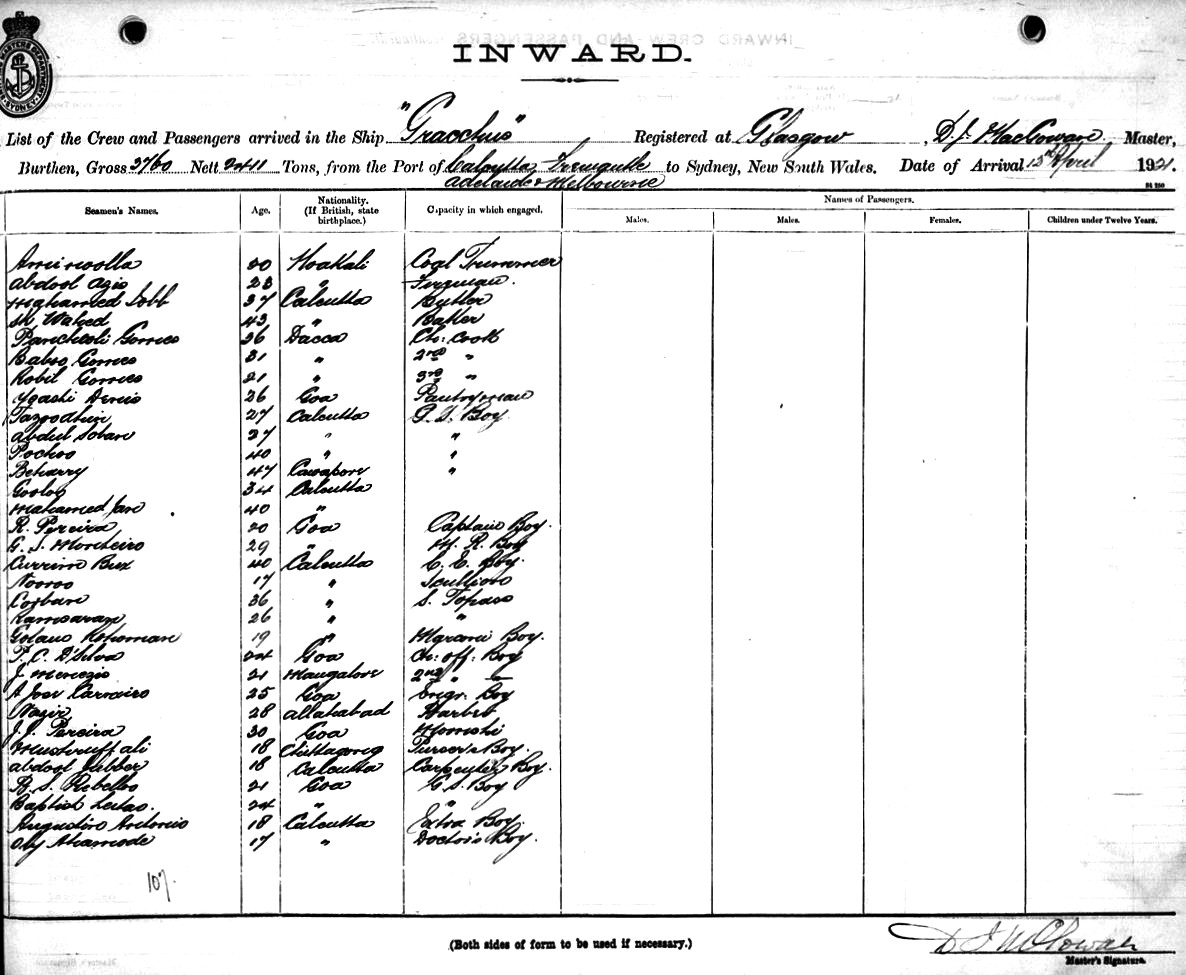 INWARD.
List of the Crew and Passengers arrived in the Ship "Gracchus" Registered at Glasgow, D. J. MacGowan, Master,
Burthen, Gross 3760 Nett 2411 Tons, from the Port of Calcutta, Fremantle to Sydney, New South Wales. Date of Arrival 13th April 1921.
Adelaide & Melbourne
Seamen's Names. Age. Nationality. (If British, state birthplace.) Capacity in which engaged. Names of Passengers.
Males. Males. Females. Children under Twelve Years.
20 Noakali Coal Trimmer
Abdool Azis 23 " Fireman.
Mahamed 37 Calcutta Butler
Sk Wahed 43 " Baker
Gomes 36 Dacca Ch: Cook
Baboo Gomes 31 " 2nd "
Robil Gomes 21 " 3rd "
Denis 26 Goa Pantryman
27 Calcutta G. S. Boy.
Abdul Soban 37 " "
Pochoo 40 " "
Beharry 47 Cawnpore "
34 Calcutta
Mahamed Jan 40 "
R. Pereira 20 Goa Captain Boy.
G. S. Monteiro 29 " M. R. Boy
Currim Bux 40 Calcutta C. E. Boy.
Nooroo 17 " Scullion
Corban 36 " S. Topass
Ramsaran 26 " "
Golam Rohoman 19 " Boy.
P. C. D'Silva 24 Goa Ch: Off: Boy
J. Menezis 21 Mangalore 2nd "
A Jose Carvairo 25 Goa Engr. Boy
Nazir 28 Allahabad Barber
J. J. Pereira 30 Goa
Musharuff Ali 18 Chittagong Purser's Boy.
Abdool Jubber 18 Calcutta Carpenter Boy.
R. S. Rebello 21 Goa G S. Boy
Baptist Leitao. 24 " "
Augustino Antonio 18 Calcutta Extra Boy.
Oly Ahamode 17 " Doctor's Boy.
107.
(Both sides of form to be used if necessary.)
D J McGowan
Master's Signature.